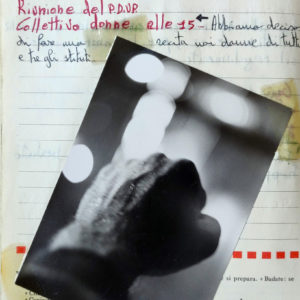 Riunione del P.D.U.P.
Collettivo donne alle 15 ← Abbiamo deciso
di fare una serata noi donne di tutti
e tre gli istituti.
si prepara. • Badate: se